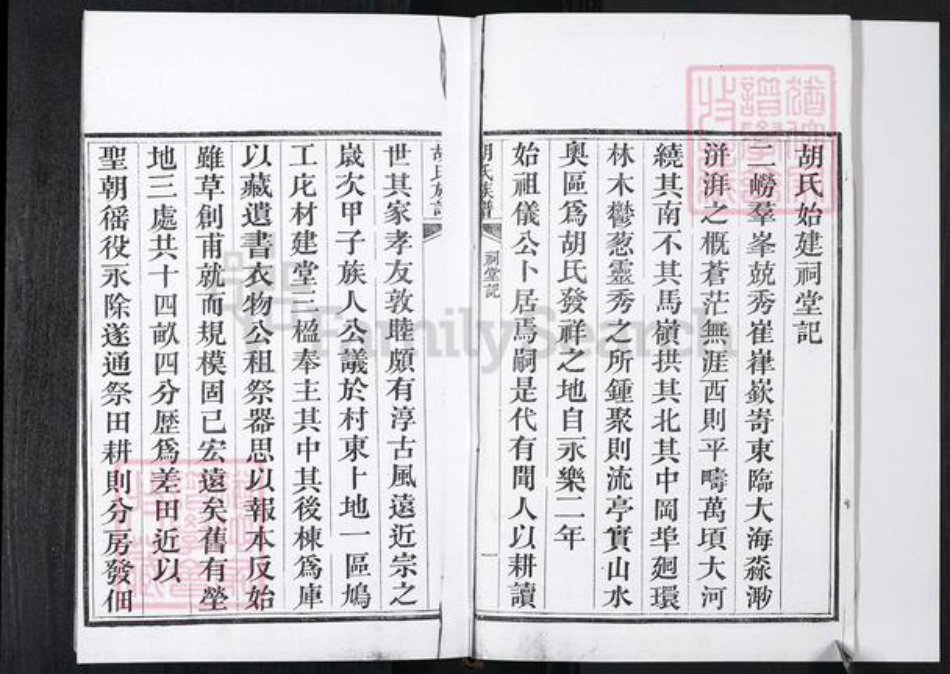 胡氏始建祠堂記
二嶗羣峯競秀崔嵂嶔嵜東臨大海淼渺
湃之概蒼茫無涯西則平疇萬頃大河
繞其南不其馬嶺拱其北其中岡埠廻環
林木鬱葱靈秀之所鍾聚則流亭實山水
奥區爲胡氏發祥之地自永樂二年
始祖儀公卜居焉嗣是代有聞人以耕讀
胡氏族譜
祠堂記
一
胡氏族譜
世其家孝友敦睦頗有淳古風遠近宗之
歲次甲子族人公議於村東上地一區鳩
工庀材建堂三楹奉主其中其後棟爲庫
以藏遺書衣物公租祭器思以報本反始
雖草創甫就而規模固已宏遠矣舊有塋
地三處共十四畝四分歷爲差田近以
聖朝徭役永除遂通祭田耕則分房發佃
FamilySearch